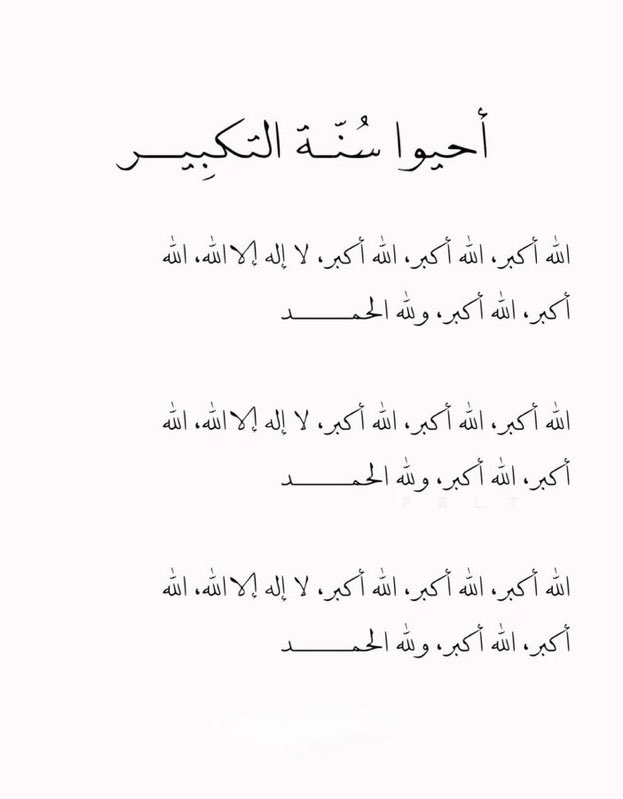 أحيوا سُنّـة التكبِيـــر
الله أكبر، الله أكبر، الله أكبر، لا إله إلا الله، الله
أكبر، الله أكبر، ولله الحمـــــــد
الله أكبر، الله أكبر، الله أكبر، لا إله إلا الله، الله
أكبر، الله أكبر، ولله الحمـــــــد
P R L T
الله أكبر، الله أكبر، الله أكبر، لا إله إلا الله، الله
أكبر، الله أكبر، ولله الحمـــــــد